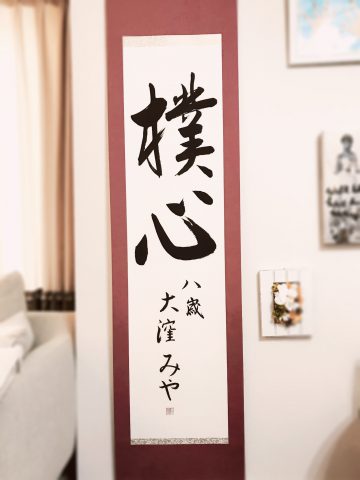 樸心
八歳
大窪みや